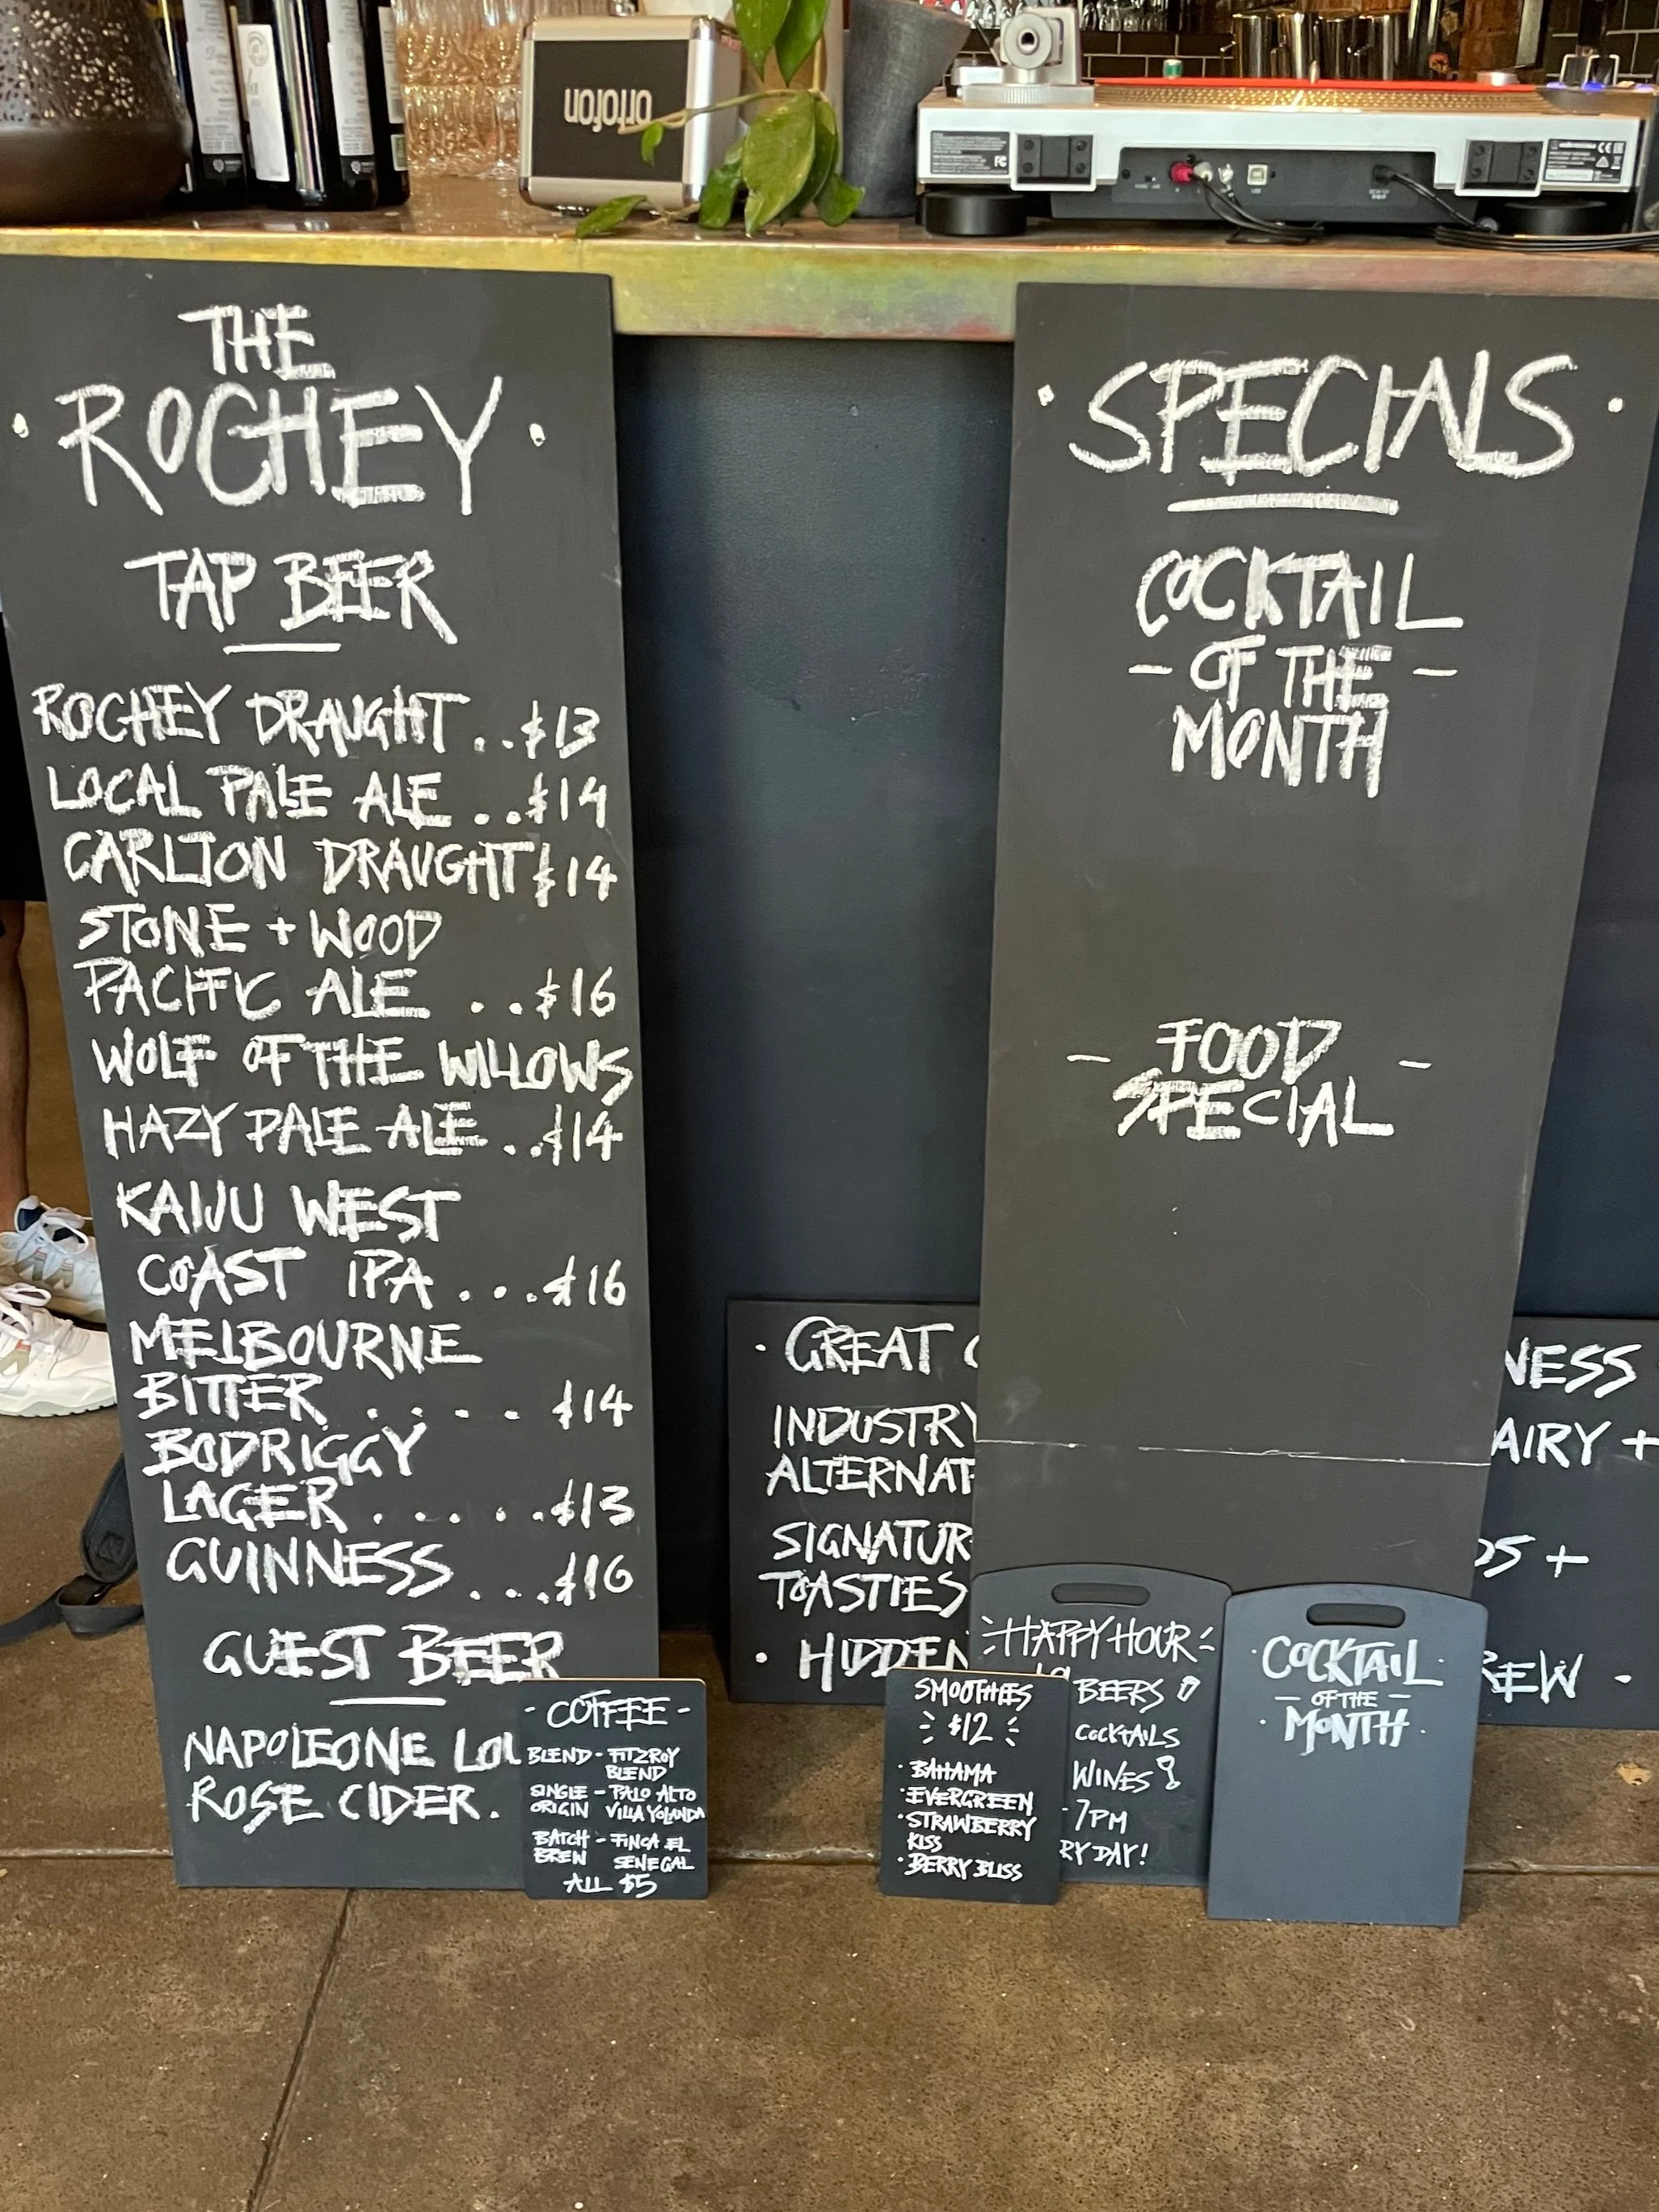 ortofon
THE
· ROCHEY ·
TAP BEER
ROCHEY DRAUGHT . . $13
LOCAL PALE ALE . . $14
CARLTON DRAUGHT $14
STONE + WOOD
PACIFIC ALE . . $16
WOLF OF THE WILLOWS
HAZY PALE ALE . . $14
KAIJU WEST
COAST IPA . . . $16
MELBOURNE
BITTER . . . . $14
BODRIGGY
LAGER . . . . . $13
GUINNESS . . . $16
GUEST BEER
NAPOLEONE
ROSE CIDER .
- COFFEE -
BLEND - FITZROY
BLEND
SINGLE - PALO ALTO
ORIGIN VILLA YOLANDA
BATCH - FINCA EL
BREW SENEGAL
ALL $5
· SPECIALS ·
COCKTAIL
- OF THE -
MONTH
- FOOD -
SPECIAL
· GREAT
INDUSTRY
ALTERNAT
SIGNATUR
TOASTIES
· HIDDEN
NESS
AIRY +
DS +
REW ·
HAPPY HOUR
BEERS
COCKTAILS
WINES
- 7PM
RY DAY!
SMOOTHIES
$12
· BAHAMA
· EVERGREEN
· STRAWBERRY
KISS
· BERRY BLISS
· COCKTAIL ·
- OF THE -
· MONTH ·